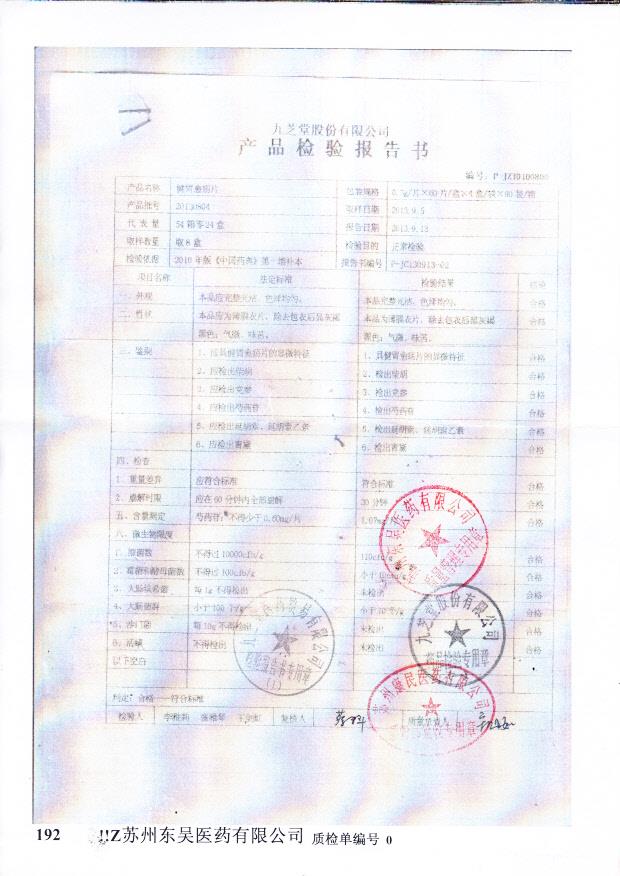 九芝堂股份有限公司
产品检验报告书
编号：P-JZ10100800
产品名称 健胃愈疡片 包装规格
产品批号 20130804 取样日期 2013.9.5
代表量 54箱零24盒 报告日期 2013.9.13
取样数量 取8盒 检验目的 正常检验
检验依据 2010年版《中国药典》第一增补本 报告书编号 P-JC130913-02
项目名称 法定标准 检验结果 结论
一、外观 本品应完整光洁，色泽均匀。 本品完整光洁，色泽均匀。 合格
二、性状 本品应为薄膜衣片，除去包衣后显灰褐 本品为薄膜衣片，除去包衣后显灰褐 合格
颜色；气微，味苦。 颜色；气微，味苦。
三、鉴别 1、应具健胃愈疡片的显微特征 1、具健胃愈疡片的显微特征 合格
2、应检出柴胡 2、检出柴胡 合格
3、应检出党参 3、检出党参 合格
4、应检出芍药苷 4、检出芍药苷 合格
5、应检出延胡索、延胡索乙素 5、检出延胡索、延胡索乙素 合格
6、应检出青黛 6、检出青黛 合格
四、检查
1、重量差异 应符合标准 符合标准 合格
2、崩解时限 应在60分钟内全部崩解 30分钟 合格
五、含量测定 芍药苷：不得少于0.60mg/片 1.07mg
六、微生物限度
1、细菌数 不得过10000cfu/g 110cfu/g 合格
2、霉菌和酵母菌数 不得过100cfu/g 小于10cfu/g 合格
3、大肠埃希菌 每1g不得检出 未检出 合格
4、大肠菌群 小于100个/g 小于10个/g 合格
5、沙门菌 每10g不得检出 未检出 合格
6、活螨 不得检出 未检出 合格
以下空白
判定：合格——符合标准
检验人 李雅莉 复核人 质量负责人
东吴医药有限公司
九芝堂股份有限公司
药品检验专用章
苏州康民医药有限公司
检验报告书专用章
(1)
192 !!Z苏州东吴医药有限公司 质检单编号 0